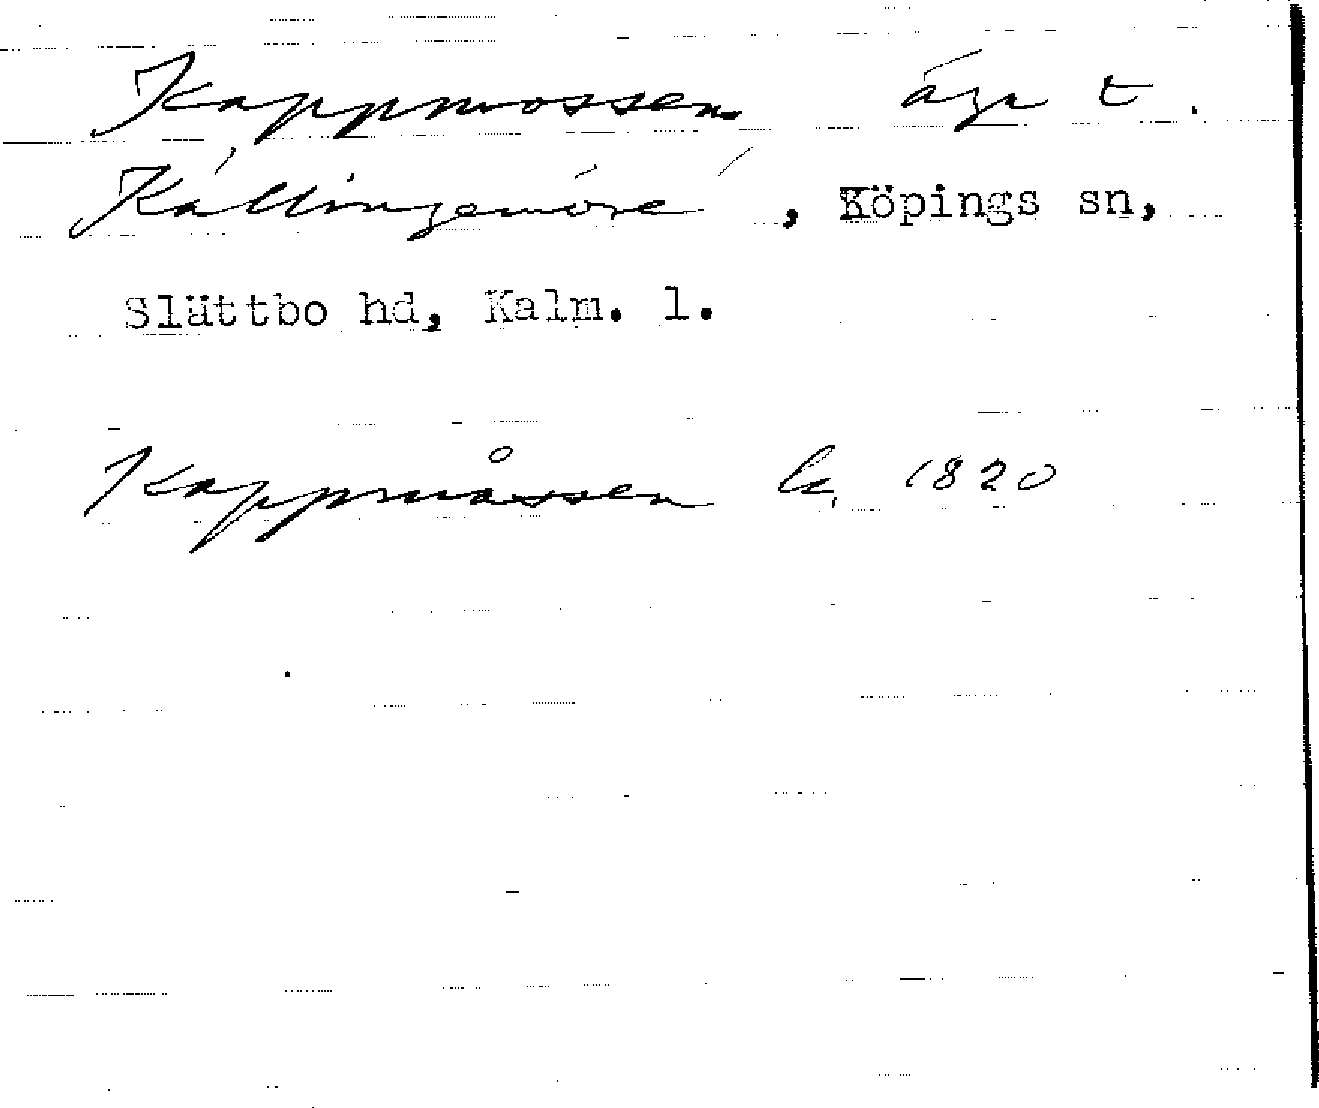 Kappmossen äga t.
Källingemöre, Köpings sn,
Slättbo hd, Kalm. l.
Kappmåssen lk 1820